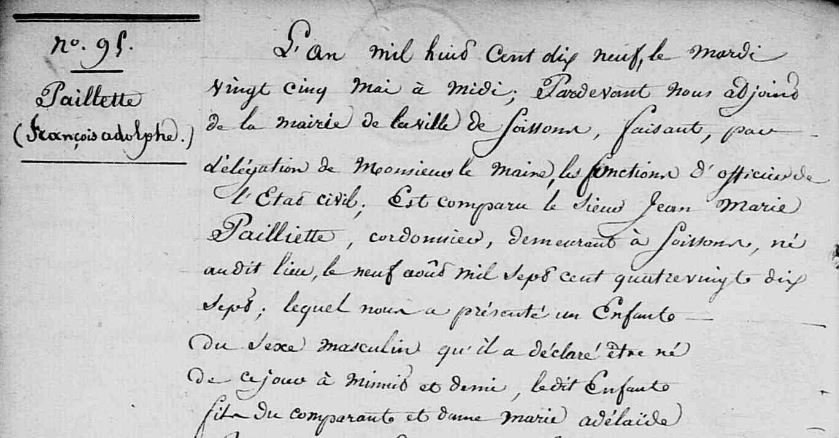 n.° 95.
Paillette
(françois adolphe.)
L'an mil huit Cent dix neuf, le mardi
vingt cinq mai à midi ; Pardevant nous adjoint
de la mairie de la ville de Soissons, faisant, par
délégation de Monsieur le Maire, les fonctions d'officier de
l'Etat civil ; Est comparu le sieur Jean Marie
Pailliette, cordonnier, demeurant à Soissons, né
audit lieu, le neuf août mil sept cent quatrevingt dix
sept ; lequel nous a présenté un Enfant
du sexe masculin qu'il a déclaré être né
de ce jour à minuit et demi, ledit Enfant
fils du comparant et dame marie adélaïde